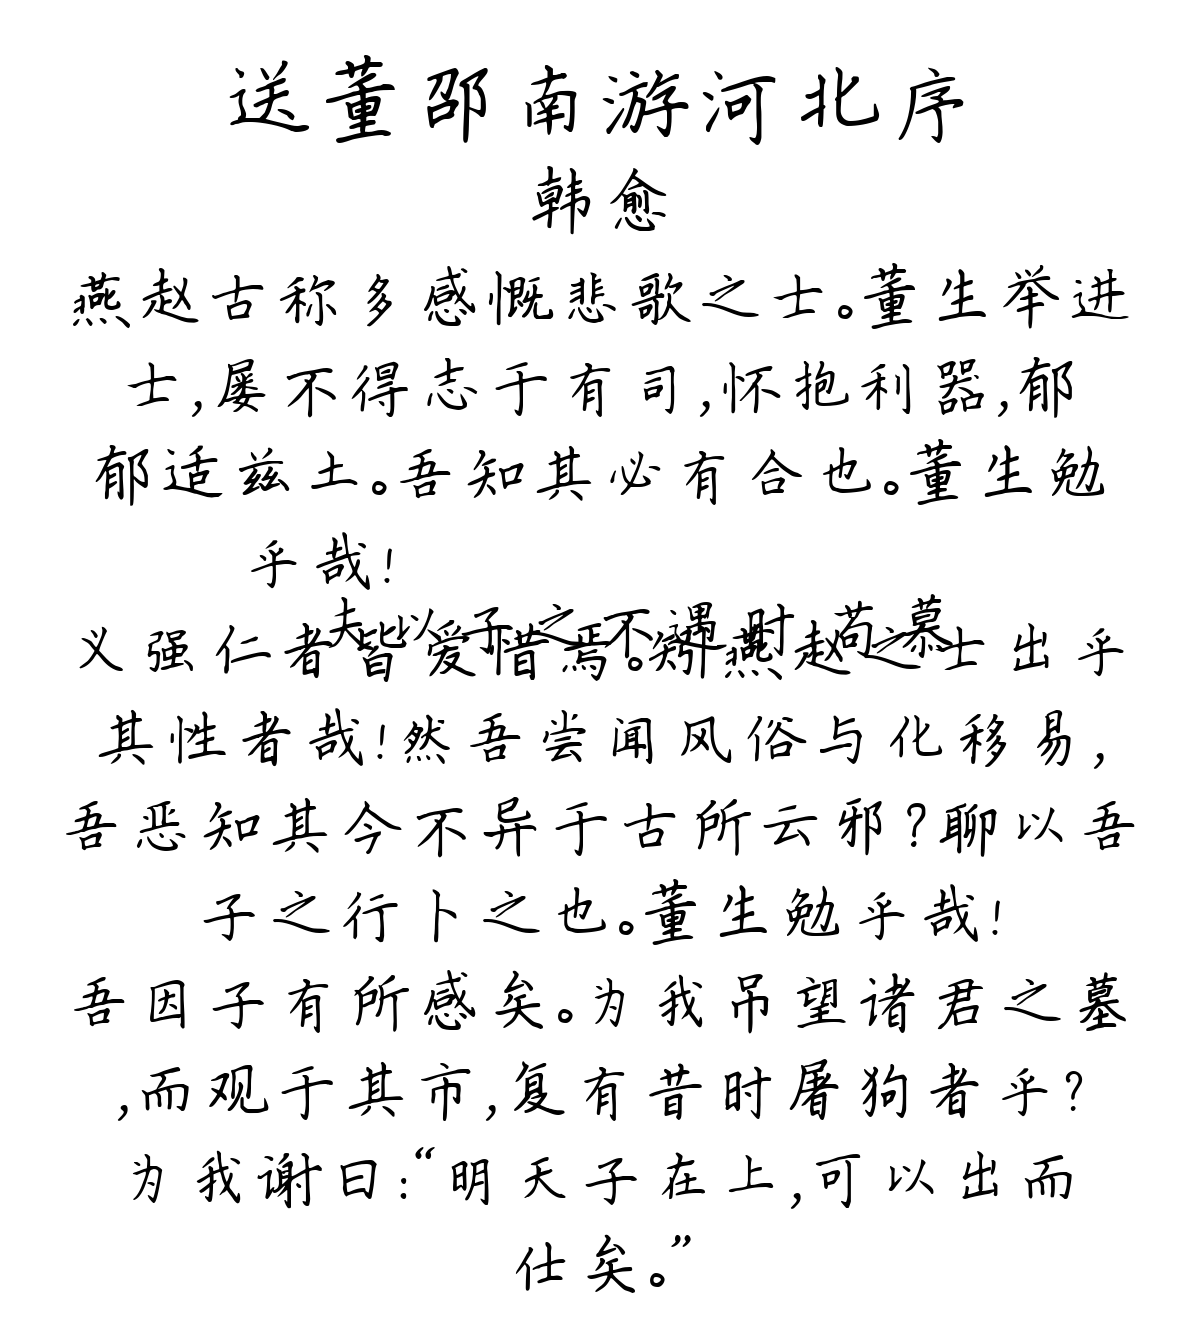 送董邵南游河北序
韩愈
燕赵古称多感慨悲歌之士。董生举进
士,屡不得志于有司,怀抱利器,郁
郁适兹土。吾知其必有合也。董生勉
乎哉!
夫以子之不遇时苟慕
义强仁者皆爱惜焉。矧燕赵之士出乎
其性者哉!然吾尝闻风俗与化移易,
吾恶知其今不异于古所云邪?聊以吾
子之行卜之也。董生勉乎哉!
吾因子有所感矣。为我吊望诸君之墓
,而观于其市,复有昔时屠狗者乎?
为我谢曰:“明天子在上,可以出而
仕矣。”